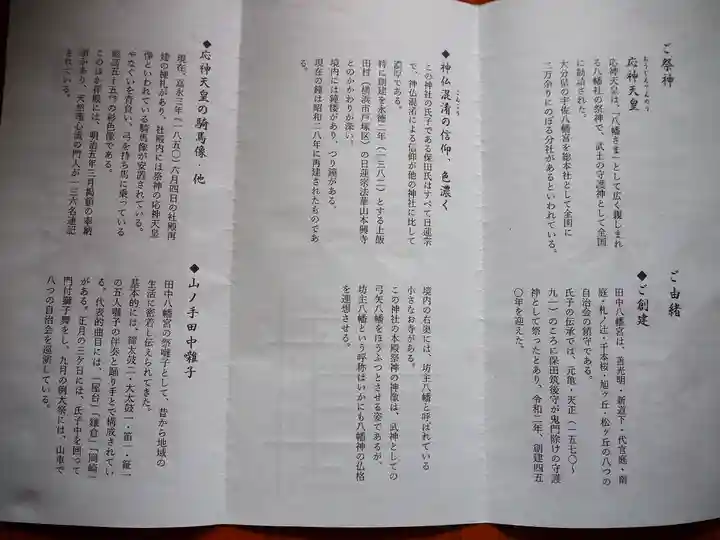 ご祭神
おうじんてんのう
応神天皇
応神天皇は、「八幡さま」として広く親しまれ
る八幡社の祭神で、武士の守護神として全国
に勧請された。
大分県の宇佐八幡宮を総本社として全国に
二万余りにのぼる分社があるといわれている。
ご由緒
◆ご創建
田中八幡宮は、善光明・新道下・代官庭・南
庭・札ノ辻・千本桜・旭ヶ丘・松ヶ丘の八つの
自治会の鎮守である。
氏子の伝承では、元亀・天正(一五七〇〜
九一)のころに保田筑後守が鬼門除けの守護
神として祭ったとあり、令和二年、創建四五
〇年を迎えた。
◆神仏混淆の信仰、色濃く
こんこう
この神社の氏子である保田氏はすべて日蓮宗
で、神仏混淆による信仰が他の神社に比して
濃厚である。
特に創建を永徳二年(一三八二)とする上飯
田村(横浜市戸塚区)の日蓮宗法華山本興寺
とのかかわりが深い。
境内には鐘楼があり、つり鐘がある。
現在の鐘は昭和二八年に再建されたものであ
る。
境内の右奥には、坊主八幡と呼ばれている
小さなお寺がある。
この神社の本殿祭神の神像は、武神としての
弓矢八幡をほうふつとさせる姿であるが、
坊主八幡という呼称はいかにも八幡神の仏格
を連想させる。
◆応神天皇の騎馬像・他
現在、嘉永三年(一八五〇)六月四日の社殿再
建の神札があり、社殿内には祭神の応神天皇
像といわれている騎馬像が安置されている。
やなぐいを背負い、弓を持ち馬に乗っている
総高五十五㌢の彩色像である。
このほか拝殿には、明治五年三月掲額の奉納
額があり、天然理心流の門人が一三六名連記
されている。
◆山ノ手田中囃子
田中八幡宮の祭囃子として、昔から地域の
生活に密着し伝えられてきた。
基本的には、締太鼓二・大太鼓一・笛一・鉦一
の五人囃子の伴奏と踊り手とで構成されてい
る。代表的曲目には、「屋台」「鎌倉」「岡崎」
がある。正月の三ケ日には、氏子中を回って
門付獅子舞をし、九月の例大祭には、山車で
八つの自治会を巡演している。